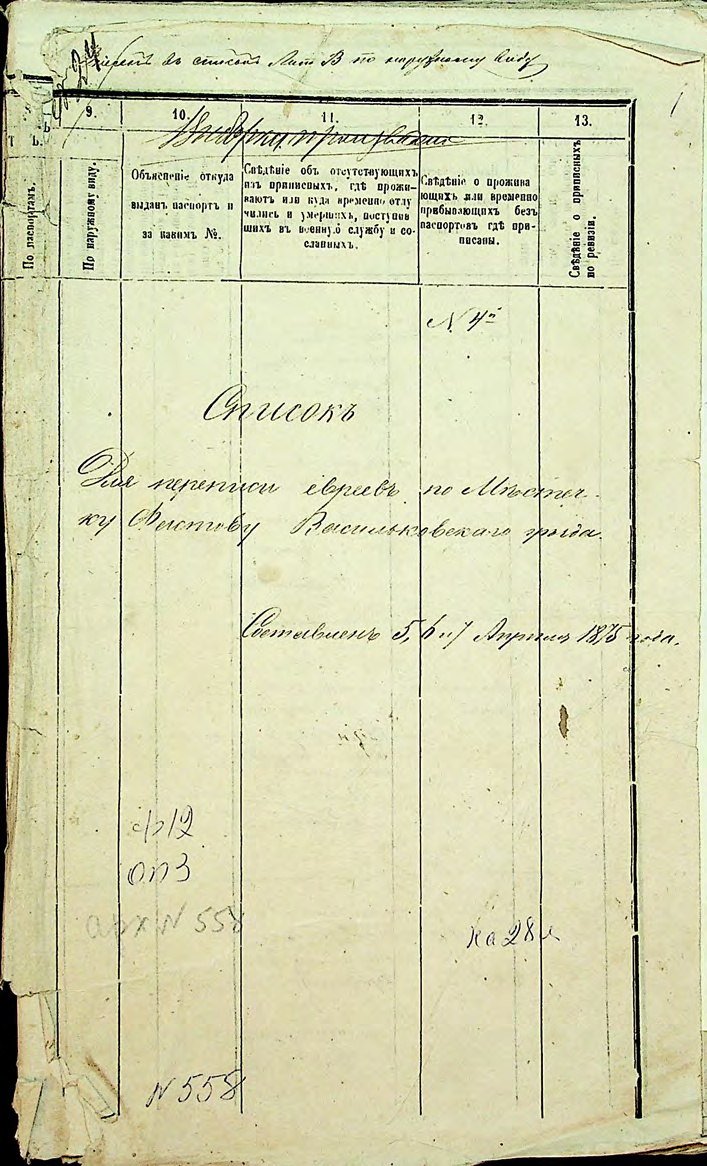 въ списокъ Лит В по наружному виду
9. 10. 11. 12. 13.
По паспортамъ.
По наружному виду.
Объясненіе откуда
выданъ паспортъ и
за какимъ №.
Свѣдѣніе объ отсутствующихъ
изъ приписныхъ, гдѣ прожи-
ваютъ или куда временно отлу
чились и умершихъ, поступив
шихъ въ военную службу и со-
сланныхъ.
Свѣдѣніе о прожива
ющихъ или временно
прибывающихъ безъ
паспортовъ гдѣ при-
писаны.
Свѣдѣніе о приписныхъ
по ревизіи.
N. 4й
Списокъ
Для переписи евреевъ по Мѣстеч-
ку Фастову Васильковскаго уѣзда.
Составленъ 5, 6 и 7 Апрѣля 1875 года.
ф12
оп3
арх N 558
на 28 л
N 558